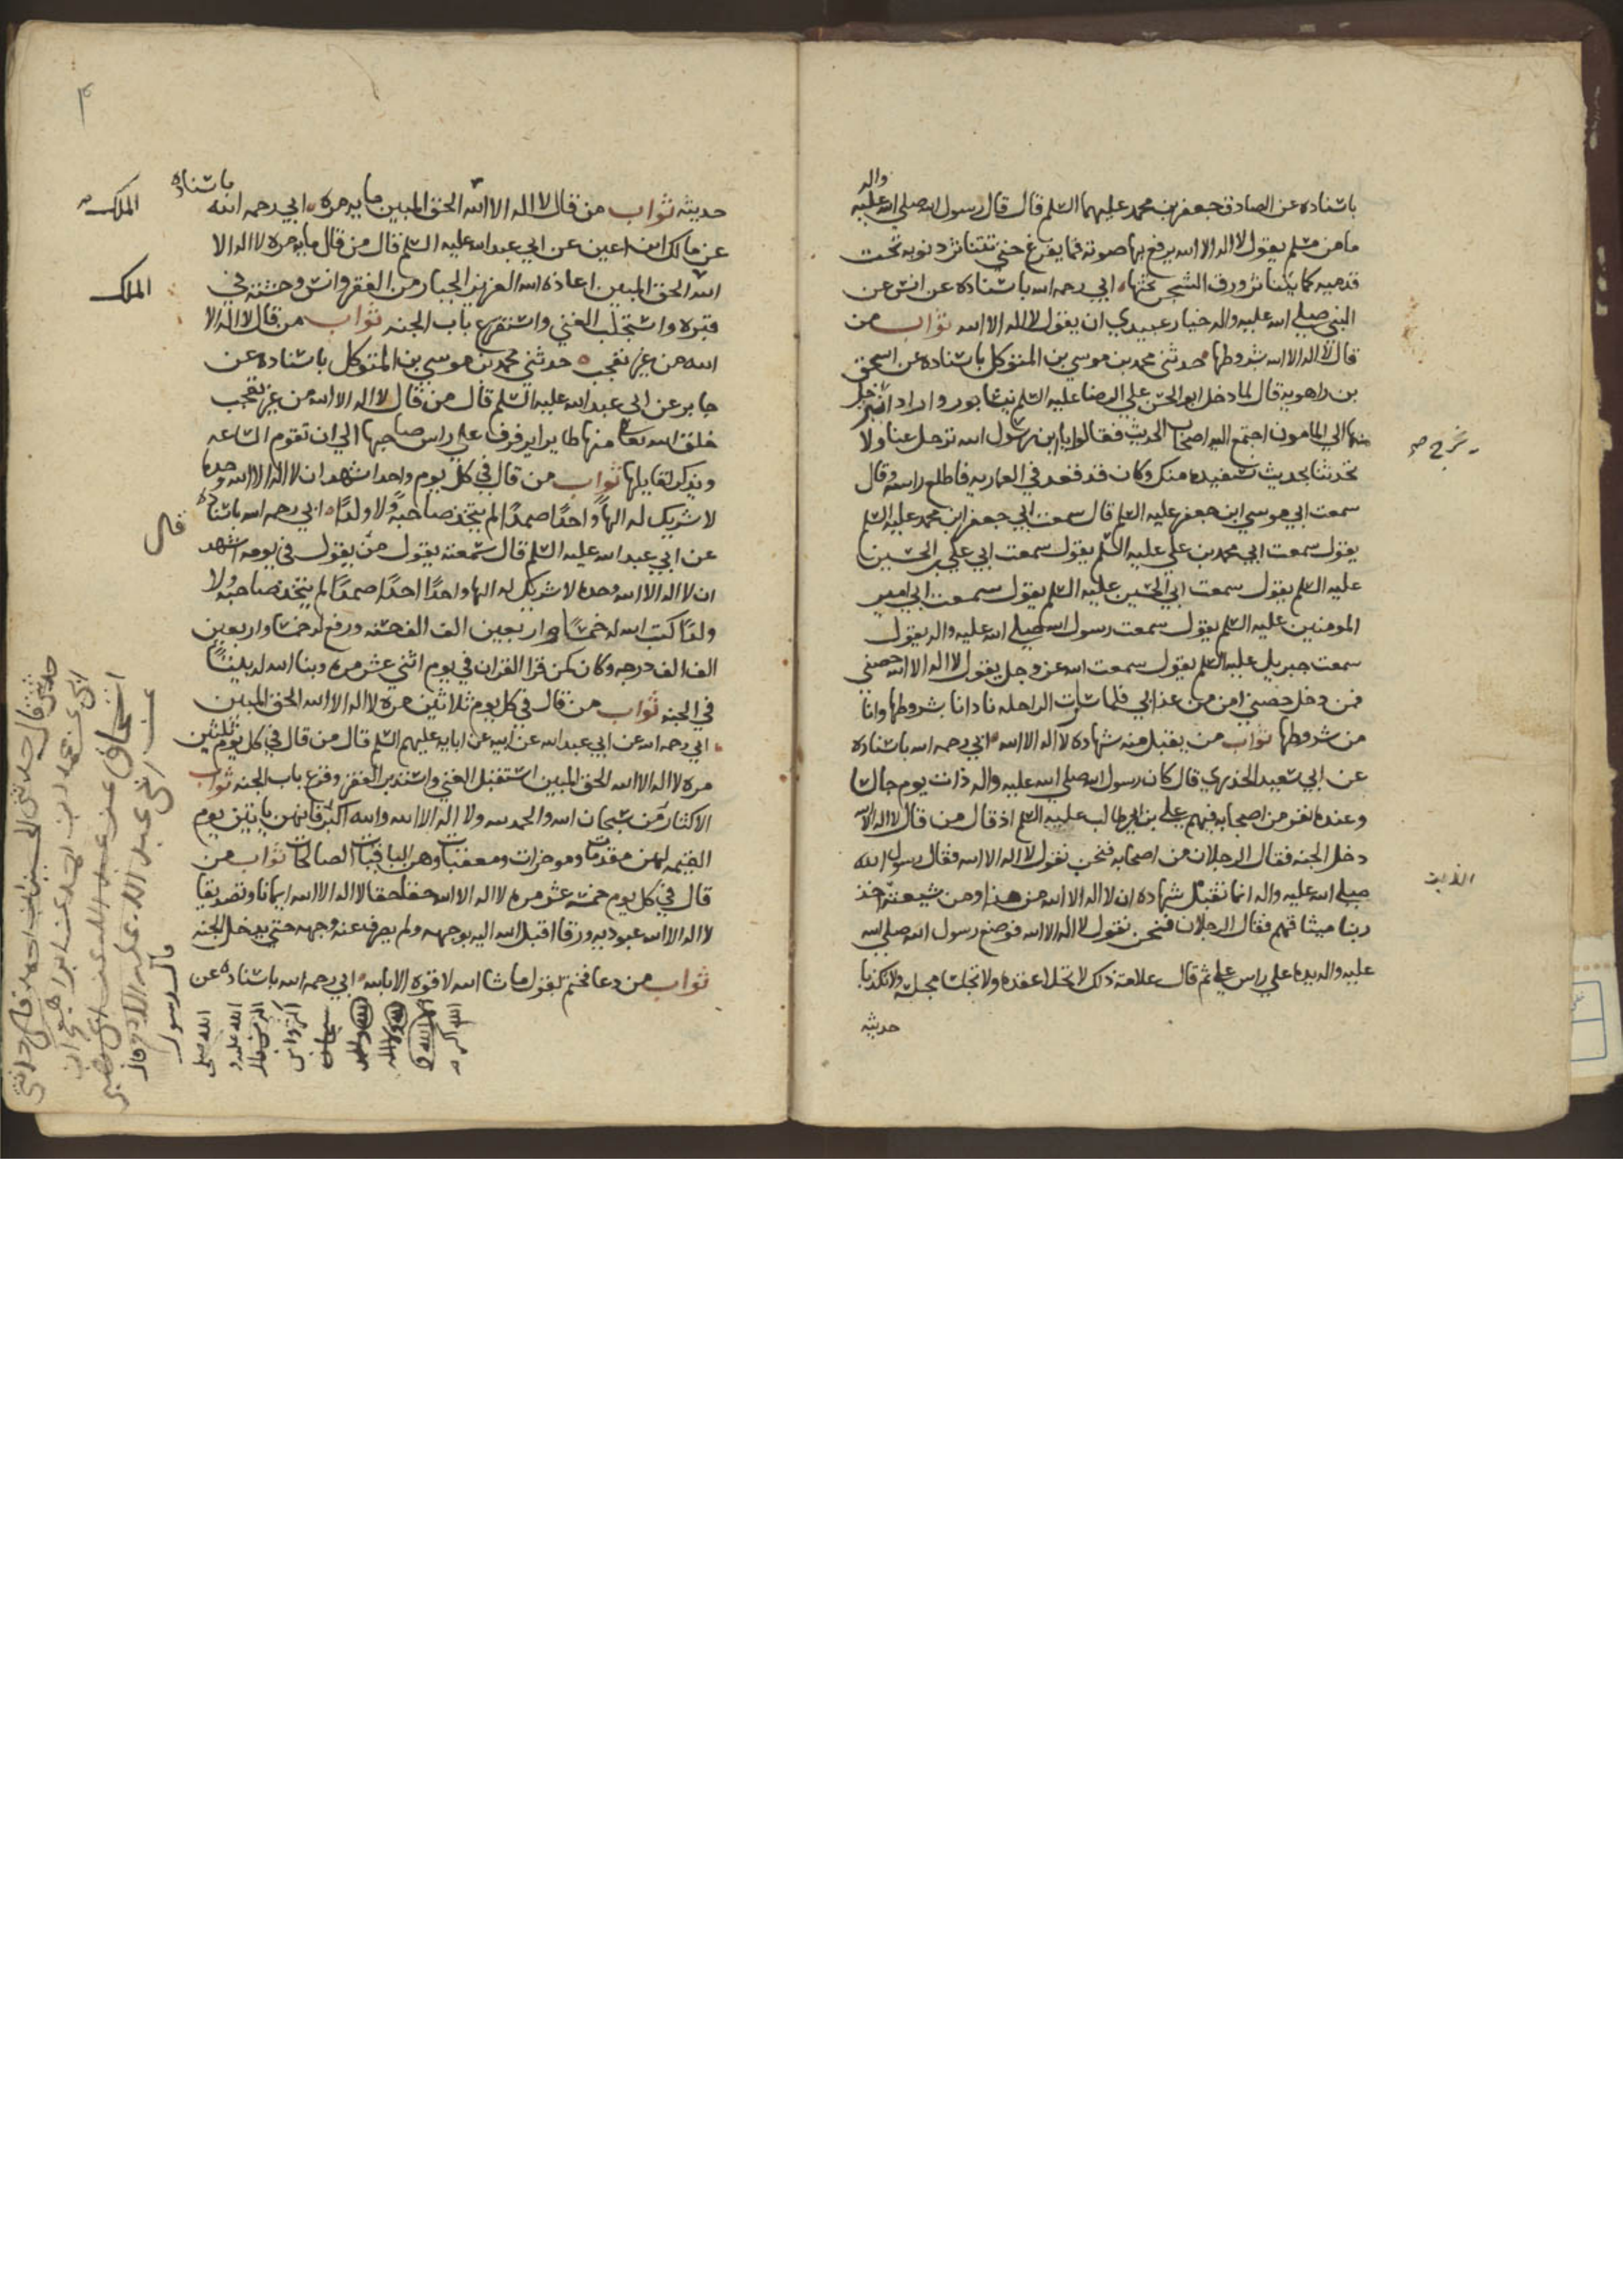 باسناده عن الصادق جعفر بن محمد عليهما السلم قال قال رسول الله صلي الله عليه واله
ما من مسلم يقول لا اله الا الله يرفع بها صوته فما يفرغ حتي تتناثر ذنوبه تحت
قدميه كما يتناثر ورق الشجر تحتها ابي رحمه الله باسناده عن انس عن
النبي صلي الله عليه واله خيار عبيدي ان يقول لا اله الا الله ثواب من
قال لا اله الا الله بشروطها حدثني محمد بن موسي بن المتوكل باسناده عن اسحق
بن راهويه قال لما دخل ابو الحسن علي الرضا عليه السلم نيشابور واراد ان
منها الي المامون اجتمع اليه اصحاب الحديث فقالوا يا بن رسول الله ترحل عنا ولا
يخرج صح
تحدثنا بحديث نستفيده منك وكان قد قعد في العماريه فاطلع راسه وقال
سمعت ابي موسي ابن جعفر عليه السلم قال سمعت ابي جعفر ابن محمد عليه السلم
يقول سمعت ابي محمد بن علي عليه السلم يقول سمعت ابي علي بن الحسين
عليه السلم يقول سمعت ابي الحسين عليه السلم يقول سمعت ابي امير
المومنين عليه السلم يقول سمعت رسول الله صلي الله عليه واله يقول
سمعت جبريل عليه السلم يقول سمعت الله عز وجل يقول لا اله الا الله حصني
فمن دخل حصني امن من عذابي فلما مرت الراحله نادانا بشروطها وانا
من شروطها ثواب من يقبل منه شهاده لا اله الا الله ابي رحمه الله باسناده
عن ابي سعيد الخدري قال كان رسول الله صلي الله عليه واله ذات يوم جالسا
وعنده نفر من اصحابه فيهم علي بن ابي طالب عليه السلم اذ قال من قال لا اله الا الله
دخل الجنه فقال الرجلان من اصحابه فنحن نقول لا اله الا الله فقال رسول الله
صلي الله عليه واله انما تقبل شهاده ان لا اله الا الله من هذا ومن شيعته اخذ
الذين
ربنا ميثاقهم فقال الرجلان فنحن نقول لا اله الا الله فوضع رسول الله صلي الله
عليه واله يده علي راس علي ثم قال علامة ذلك لا تحلا عقده ولا تجلسا مجلسه ولا تكذبا
حديثه
حديثه ثواب من قال لا اله الا الله الحق المبين مايه مره ابي رحمه الله باسناده
الملك صح
عن مالك ابن اعين عن ابي عبد الله عليه السلم قال من قال مايه مره لا اله الا
الله الحق المبين اعاذه الله العزيز الجبار من الفقر وانس وحشته في
الملك
قبره واستجلب الغني واستقرع باب الجنه ثواب من قال لا اله الا
الله من غير تعجب حدثني محمد بن موسي بن المتوكل باسناده عن
جابر عن ابي عبد الله عليه السلم قال من قال لا اله الا الله من غير تعجب
خلق الله تعالى منها طايرا يرفرف علي راس صاحبها الي ان تقوم الساعه
ويذكر لقايلها ثواب من قال في كل يوم واحد اشهد ان لا اله الا الله وحده
لا شريك له الها واحدا صمدا لم يتخذ صاحبة ولا ولدا ابي رحمه الله باسناده
قال
عن ابي عبد الله عليه السلم قال سمعته يقول من يقول في يومه اشهد
ان لا اله الا الله وحده لا شريك له الها واحدا احدا صمدا لم يتخذ صاحبة ولا
ولدا كتب الله له خمسا واربعين الف الف حسنه ورفع له خمسا واربعين
الف الف درجه وكان كمن قرا القران في يوم اثني عشر مره وبنا الله له بيتا
في الجنه ثواب من قال في كل يوم ثلاثين مره لا اله الا الله الحق المبين
ابي رحمه الله عن ابي عبد الله عن ابيه عن ابايه عليهم السلم قال من قال في كل يوم ثلثين
مره لا اله الا الله الحق المبين استقبل الغني واستدبر الفقر وقرع باب الجنه ثواب
الاكثار من سبحان الله والحمد لله ولا اله الا الله والله اكبر فانهن ياتين يوم
القيمه لهن مقدمات وموخرات ومعقبات وهن الباقيات الصالحات ثواب من
قال في كل يوم خمسة عشر مره لا اله الا الله حقا حقا لا اله الا الله ايمانا وتصديقا
لا اله الا الله عبوديه ورقا اقبل الله اليه بوجهه ولم يصرف عنه وجهه حتي يدخل الجنه
ثواب من دعا فختم بقول ما شا الله لا قوه الا بالله ابي رحمه الله باسناده عن
اسحاق عن عبد الله عن
ابي عبد الله عليه السلام قال
قال رسول
الله صلى
الله عليه و
اكثروا من
سبحان
الله والحمد
لله ولا اله
الا الله و
الله اكبر